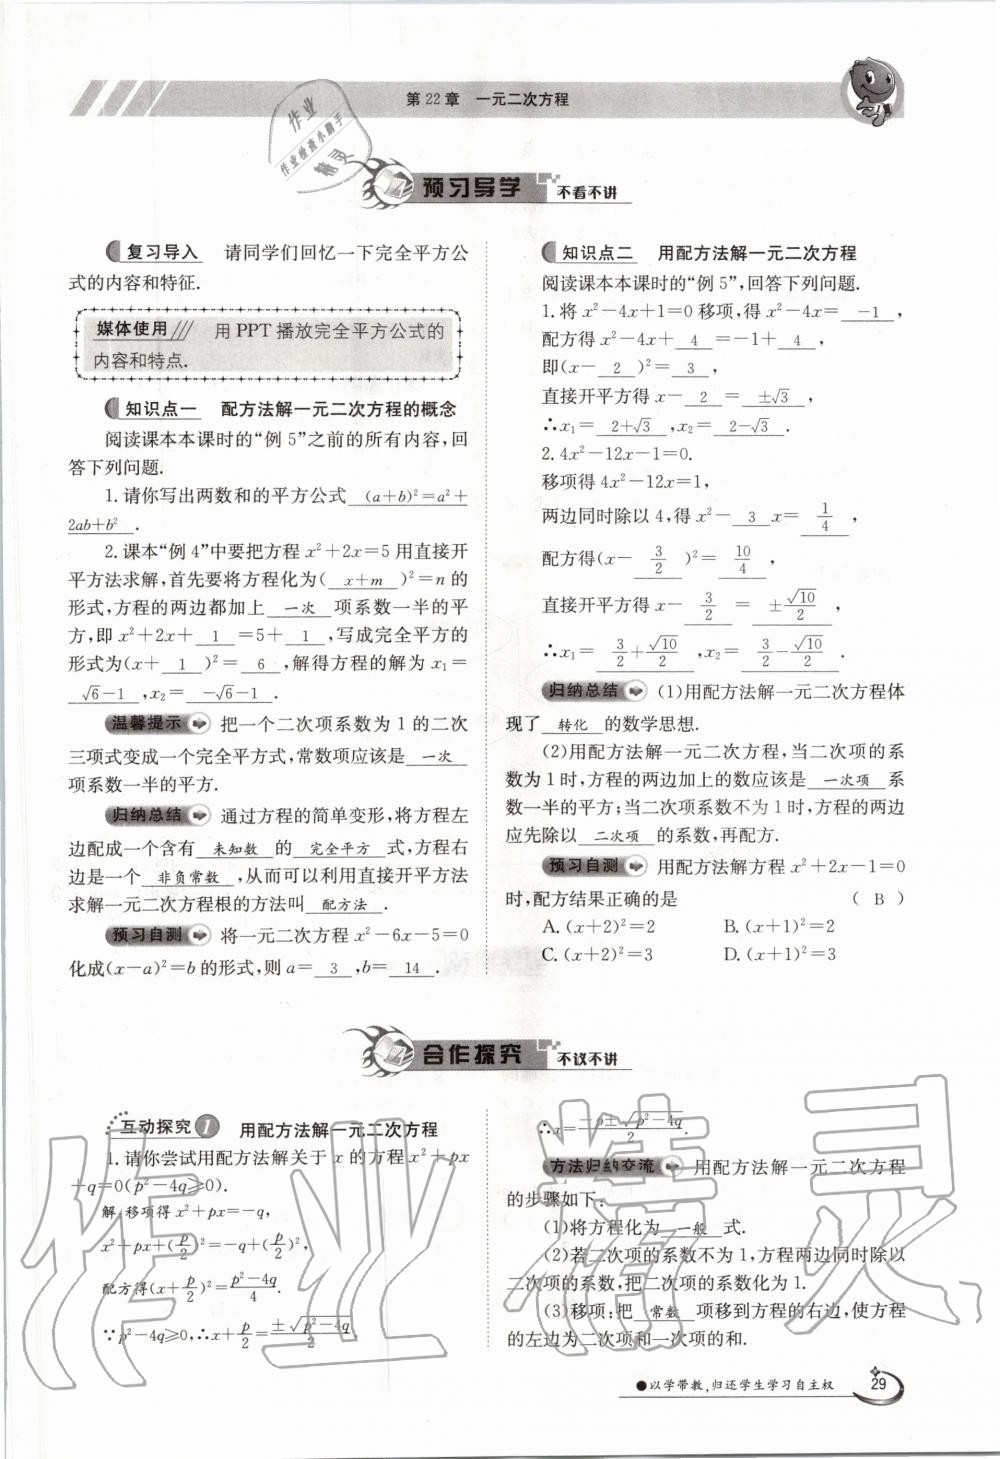 第22章 一元二次方程
作业
作业检查小助手
精灵
预习导学 不看不讲
复习导入 请同学们回忆一下完全平方公
式的内容和特征.
媒体使用 用PPT播放完全平方公式的
内容和特点.
知识点一 配方法解一元二次方程的概念
阅读课本本课时的“例5”之前的所有内容,回
答下列问题.
1.请你写出两数和的平方公式 (a+b)²=a²+
2ab+b² .
2.课本“例4”中要把方程x²+2x=5用直接开
平方法求解,首先要将方程化为( x+m )²=n的
形式,方程的两边都加上 一次 项系数一半的平
方,即x²+2x+ 1 =5+ 1 ,写成完全平方的
形式为(x+ 1 )²= 6 ,解得方程的解为x₁=
√6-1 ,x₂= -√6-1 .
温馨提示 把一个二次项系数为1的二次
三项式变成一个完全平方式,常数项应该是 一次
项系数一半的平方.
归纳总结 通过方程的简单变形,将方程左
边配成一个含有 未知数 的 完全平方 式,方程右
边是一个 非负常数 ,从而可以利用直接开平方法
求解一元二次方程根的方法叫 配方法 .
预习自测 将一元二次方程x²-6x-5=0
化成(x-a)²=b的形式,则a= 3 ,b= 14 .
知识点二 用配方法解一元二次方程
阅读课本本课时的“例5”,回答下列问题.
1.将x²-4x+1=0移项,得x²-4x= -1 ,
配方得x²-4x+ 4 =-1+ 4 ,
即(x- 2 )²= 3 ,
直接开平方得x- 2 = ±√3 ,
∴x₁= 2+√3 ,x₂= 2-√3 .
2.4x²-12x-1=0.
移项得4x²-12x=1,
两边同时除以4,得x²- 3 x= 1/4 ,
配方得(x- 3/2 )²= 10/4 ,
直接开平方得x- 3/2 = ±√10/2 ,
∴x₁= 3/2+√10/2 ,x₂= 3/2-√10/2 .
归纳总结 (1)用配方法解一元二次方程体
现了 转化 的数学思想.
(2)用配方法解一元二次方程,当二次项的系
数为1时,方程的两边加上的数应该是 一次项 系
数一半的平方;当二次项系数不为1时,方程的两边
应先除以 二次项 的系数,再配方.
预习自测 用配方法解方程x²+2x-1=0
时,配方结果正确的是 ( B )
A.(x+2)²=2 B.(x+1)²=2
C.(x+2)²=3 D.(x+1)²=3
合作探究 不议不讲
互动探究1 用配方法解一元二次方程
1.请你尝试用配方法解关于x的方程x²+px
+q=0(p²-4q≥0).
解:移项得x²+px=-q,
x²+px+(p/2)²=-q+(p/2)²,
配方得(x+p/2)²=(p²-4q)/4.
∵p²-4q≥0,∴x+p/2=±√(p²-4q)/2,
∴x=(-p±√(p²-4q))/2.
方法归纳交流 用配方法解一元二次方程
的步骤如下:
(1)将方程化为 一般 式.
(2)若二次项的系数不为1,方程两边同时除以
二次项的系数,把二次项的系数化为1.
(3)移项:把 常数 项移到方程的右边,使方程
的左边为二次项和一次项的和.
作业精灵
●以学带教,归还学生学习自主权 29